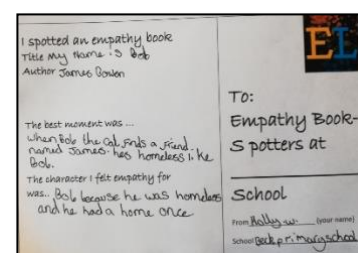 I spotted an empathy book
Title My Name is Bob
Author James Bowen
The best moment was ...
when Bob the Cat finds a friend
named James. hes homeless like
Bob.
The character I felt empathy for
was.. Bob because he was homeless
and he had a home once.
EL
To:
Empathy Book-
Spotters at
School
From Holly w. (your name)
School Beck primary school